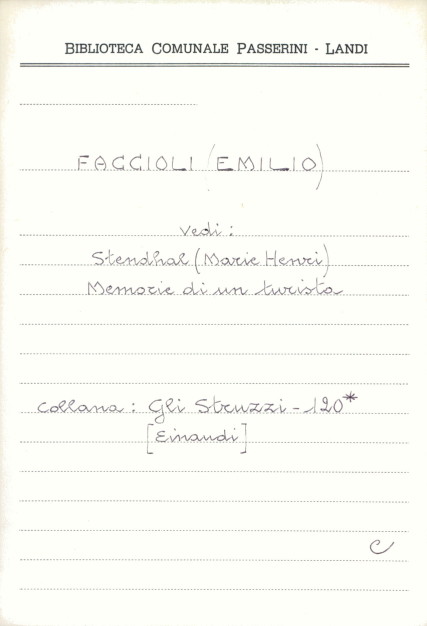 BIBLIOTECA COMUNALE PASSERINI - LANDI
FACCIOLI (EMILIO)
Vedi :
Stendhal (Marie Henri)
Memorie di un turista
Collana : Gli Struzzi - 120*
[Einaudi]
C